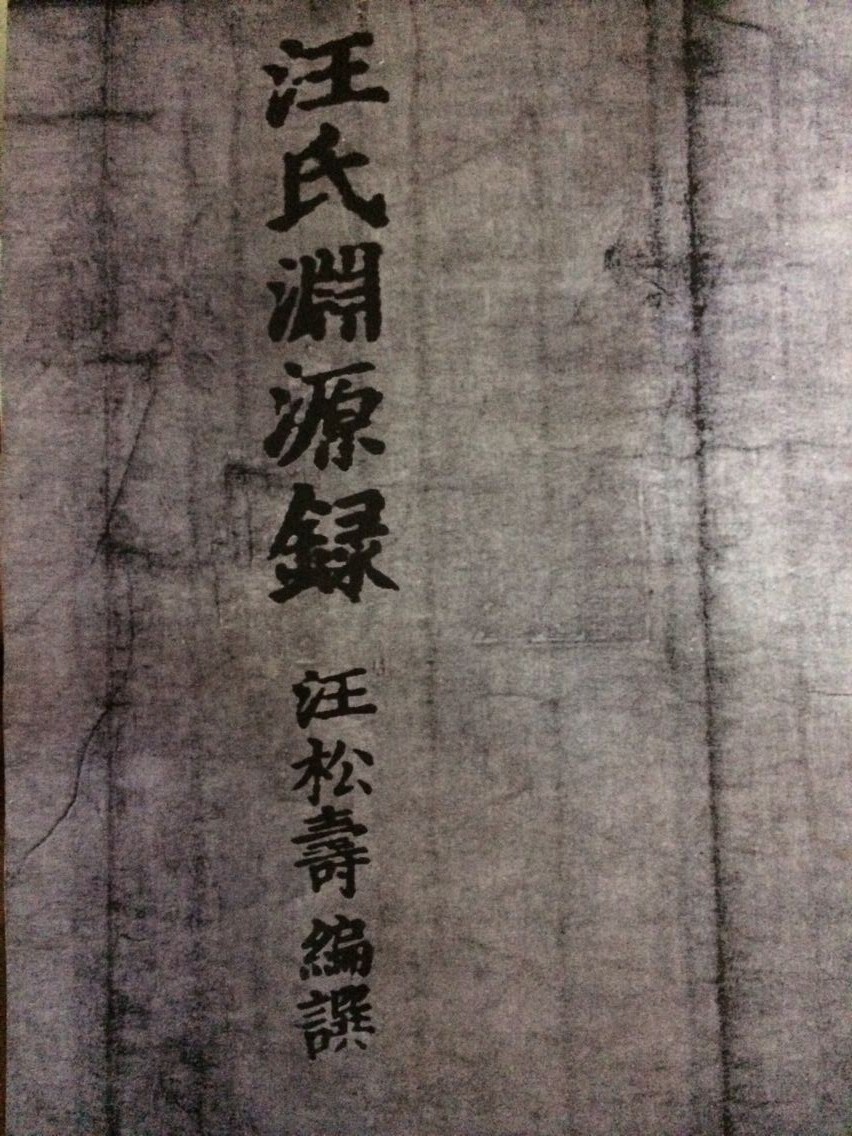 汪氏淵源録 汪松壽編譔